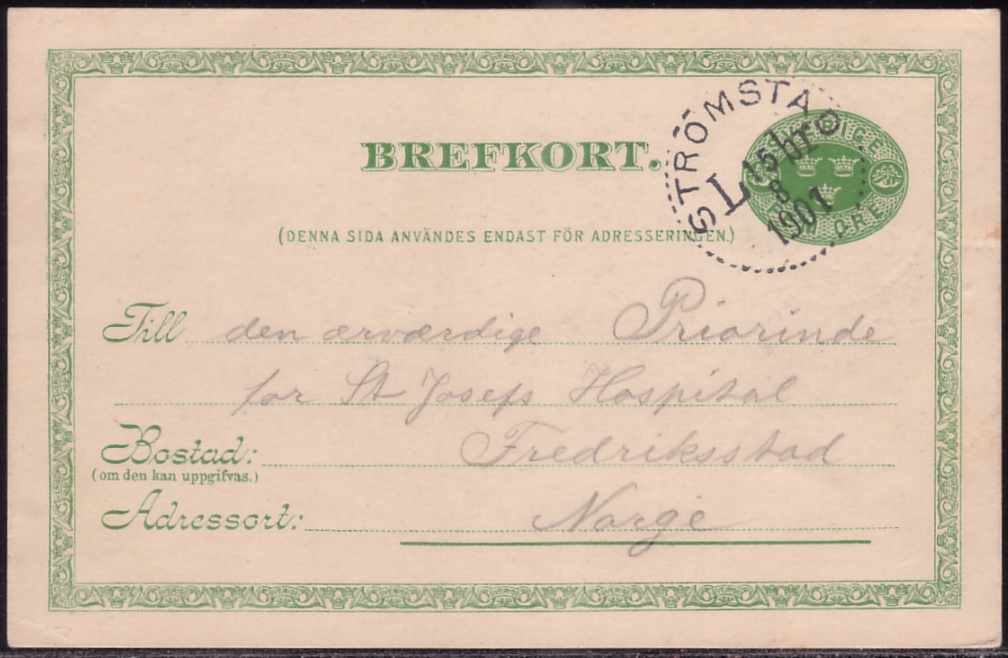 BREFKORT.
STRÖMSTAD
L br
15
8
1901
SVERIGE
ÖRE
(DENNA SIDA ANVÄNDES ENDAST FÖR ADRESSERINGEN.)
Till den ærværdige Priorinde
for St Josefs Hospital
Bostad: Fredriksstad
(om den kan uppgifvas.)
Adressort: Norge